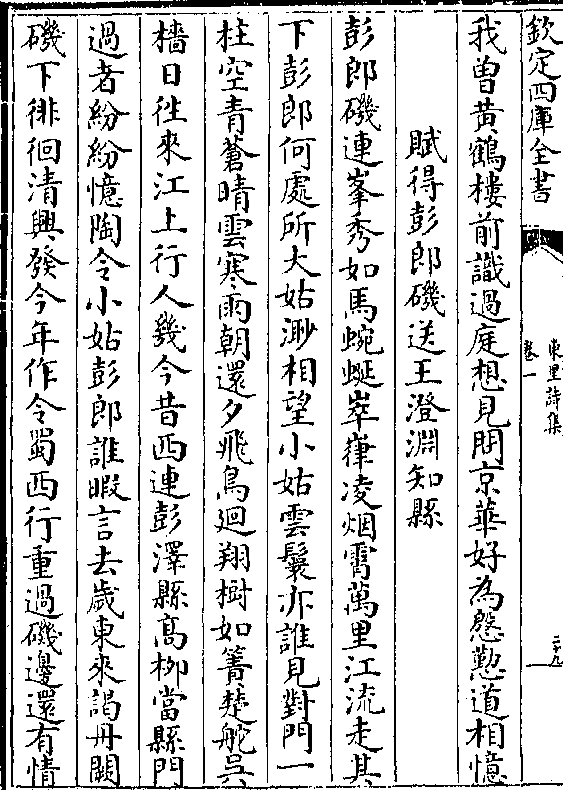 欽定四庫全書
東里詩集
卷一
二十九
我曽黄鶴樓前識過庭想見問京華好為慇懃道相憶
賦得彭郎磯送王澄淵知縣
彭郎磯連峯秀如馬蜿蜒崒嵂凌烟霄萬里江流走其
下彭郎何處所大姑渺相望小姑雲鬟亦誰見對門一
柱空青蒼晴雲寒雨朝還夕飛鳥迴翔樹如簀楚舵吳
檣日徃來江上行人幾今昔西連彭澤縣髙栁當縣門
過者紛紛憶陶令小姑彭郎誰暇言去歲東來謁丹闕
磯下徘徊清興發今年作令蜀西行重過磯邊還有情